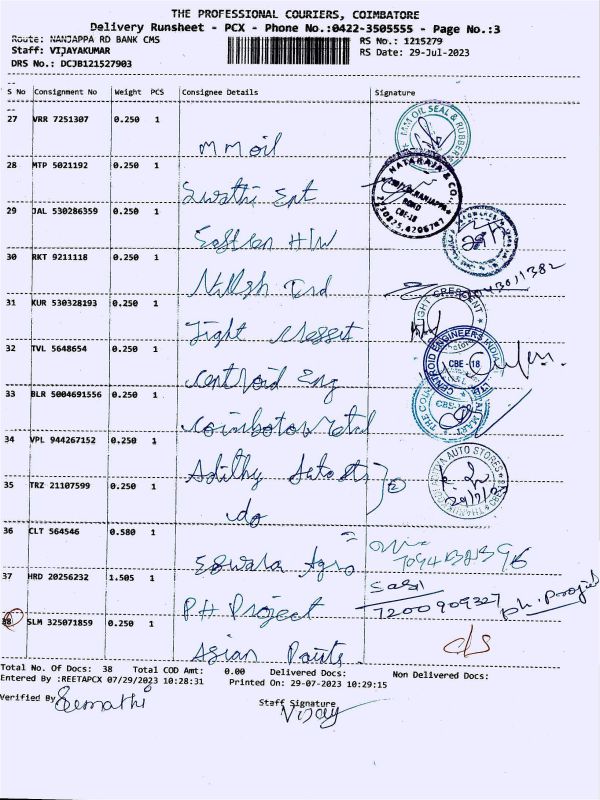 THE PROFESSIONAL COURIERS, COIMBATORE
Delivery Runsheet - PCX - Phone No.:0422-3505555 - Page No.:3
Route: NANJAPPA RD BANK CMS
RS No.: 1215279
Staff: VIJAYAKUMAR
RS Date: 29-Jul-2023
DRS No.: DCJB121527903
S No Consignment No Weight PCS Consignee Details Signature
27 VRR 7251307 0.250 1
MM OIL SEAL & RUBBER
MM oil
28 MTP 5021192 0.250 1
NATARAJA & CO.,
NANJAPPA
ROAD
CBE-18
Swathi Ent
29 JAL 530286359 0.250 1
Eastern H/W
30 RKT 9211118 0.250 1
31 KUR 530328193 0.250 1
LIGHT CRESCENT
32 TVL 5648654 0.250 1
CENTROID ENGINEERS INDIA
CBE - 18
Centroid Eng
33 BLR 5004691556 0.250 1
THE COIMBATORE METAL MART
Coimbatore Metal
34 VPL 944267152 0.250 1
AUTO STORES
Adithy Auto St
35 TRZ 21107599 0.250 1
do
36 CLT 564546 0.580 1
Eswara Agro
37 HRD 20256232 1.505 1
Sasi
7200909327
Ph. Project
PH Project
38 SLM 325071859 0.250 1
c/s
Asian Paints.
Total No. Of Docs: 38 Total COD Amt: 0.00 Delivered Docs: Non Delivered Docs:
Entered By :REETAPCX 07/29/2023 10:28:31 Printed On: 29-07-2023 10:29:15
Verified By
Staff Signature
Vijay